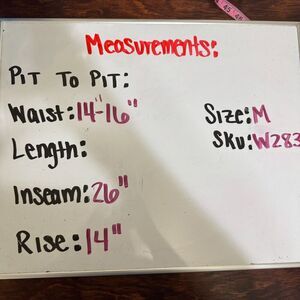 Measurements:
Pit To Pit:
Waist: 14"-16"
Length:
Inseam: 26"
Rise: 14"
Size: M
Sku: W283